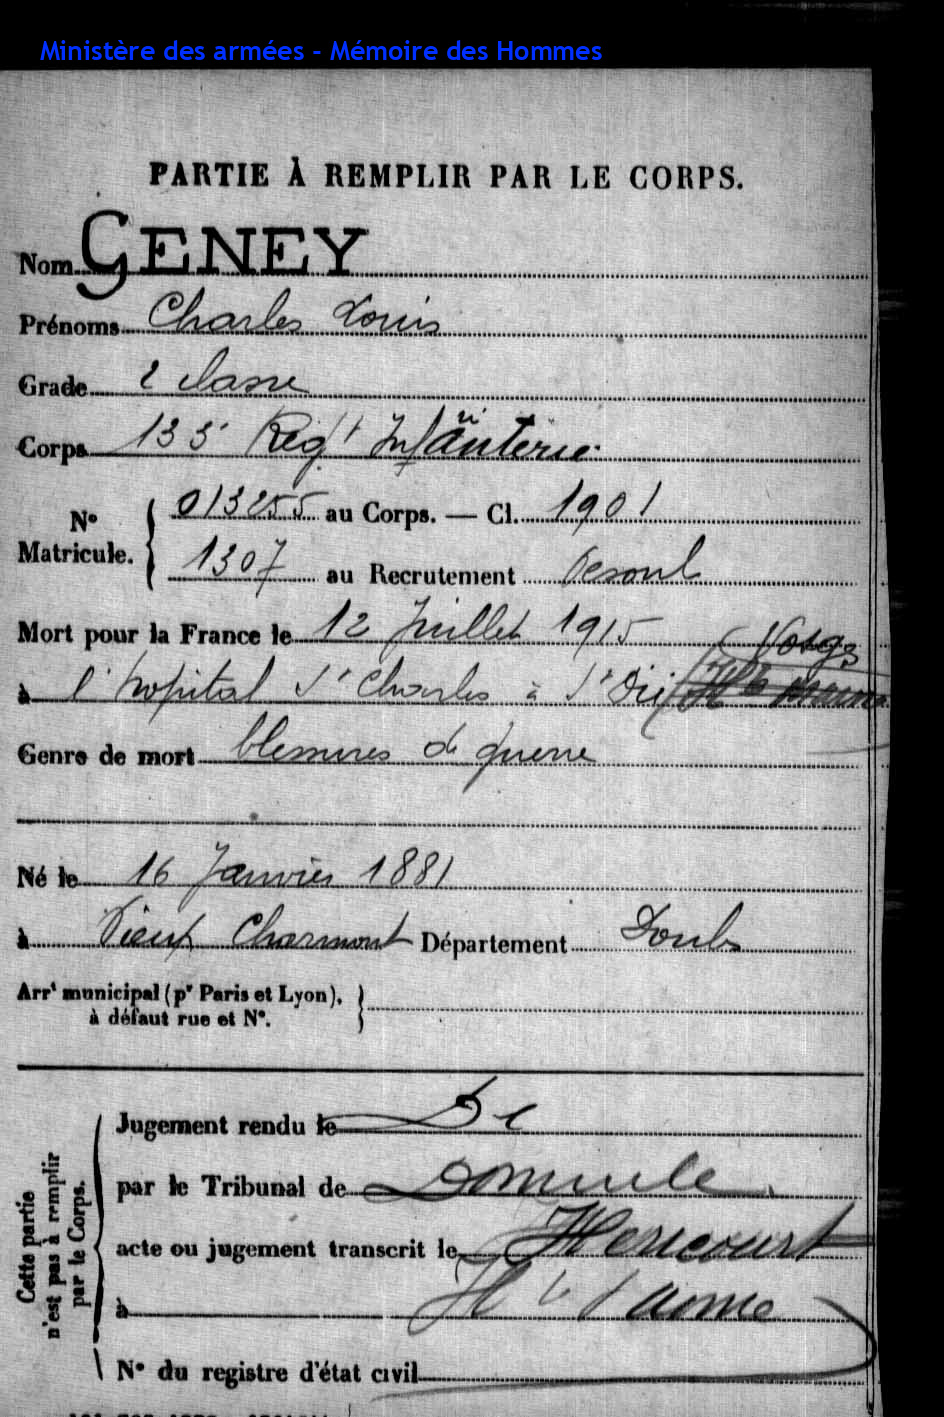 Ministère des armées - Mémoire des Hommes
PARTIE À REMPLIR PAR LE CORPS.
Nom GENEY
Prénoms Charles Louis
Grade 2 classe
Corps 133e Regt Infanterie
N° Matricule. { 013255 au Corps. — Cl. 1901
1307 au Recrutement Vesoul
Mort pour la France le 12 Juillet 1915
à l'hopital St Charles à St Dié Vosges
Genre de mort blessures de guerre
Né le 16 Janvier 1881
à Vieux Charmont Département Doubs
Arrt municipal (pr Paris et Lyon), }
à défaut rue et N°.
Cette partie n'est pas à remplir par le Corps.
Jugement rendu le De
par le Tribunal de Domicile
acte ou jugement transcrit le Hericourt
à Hte Saone
N° du registre d'état civil